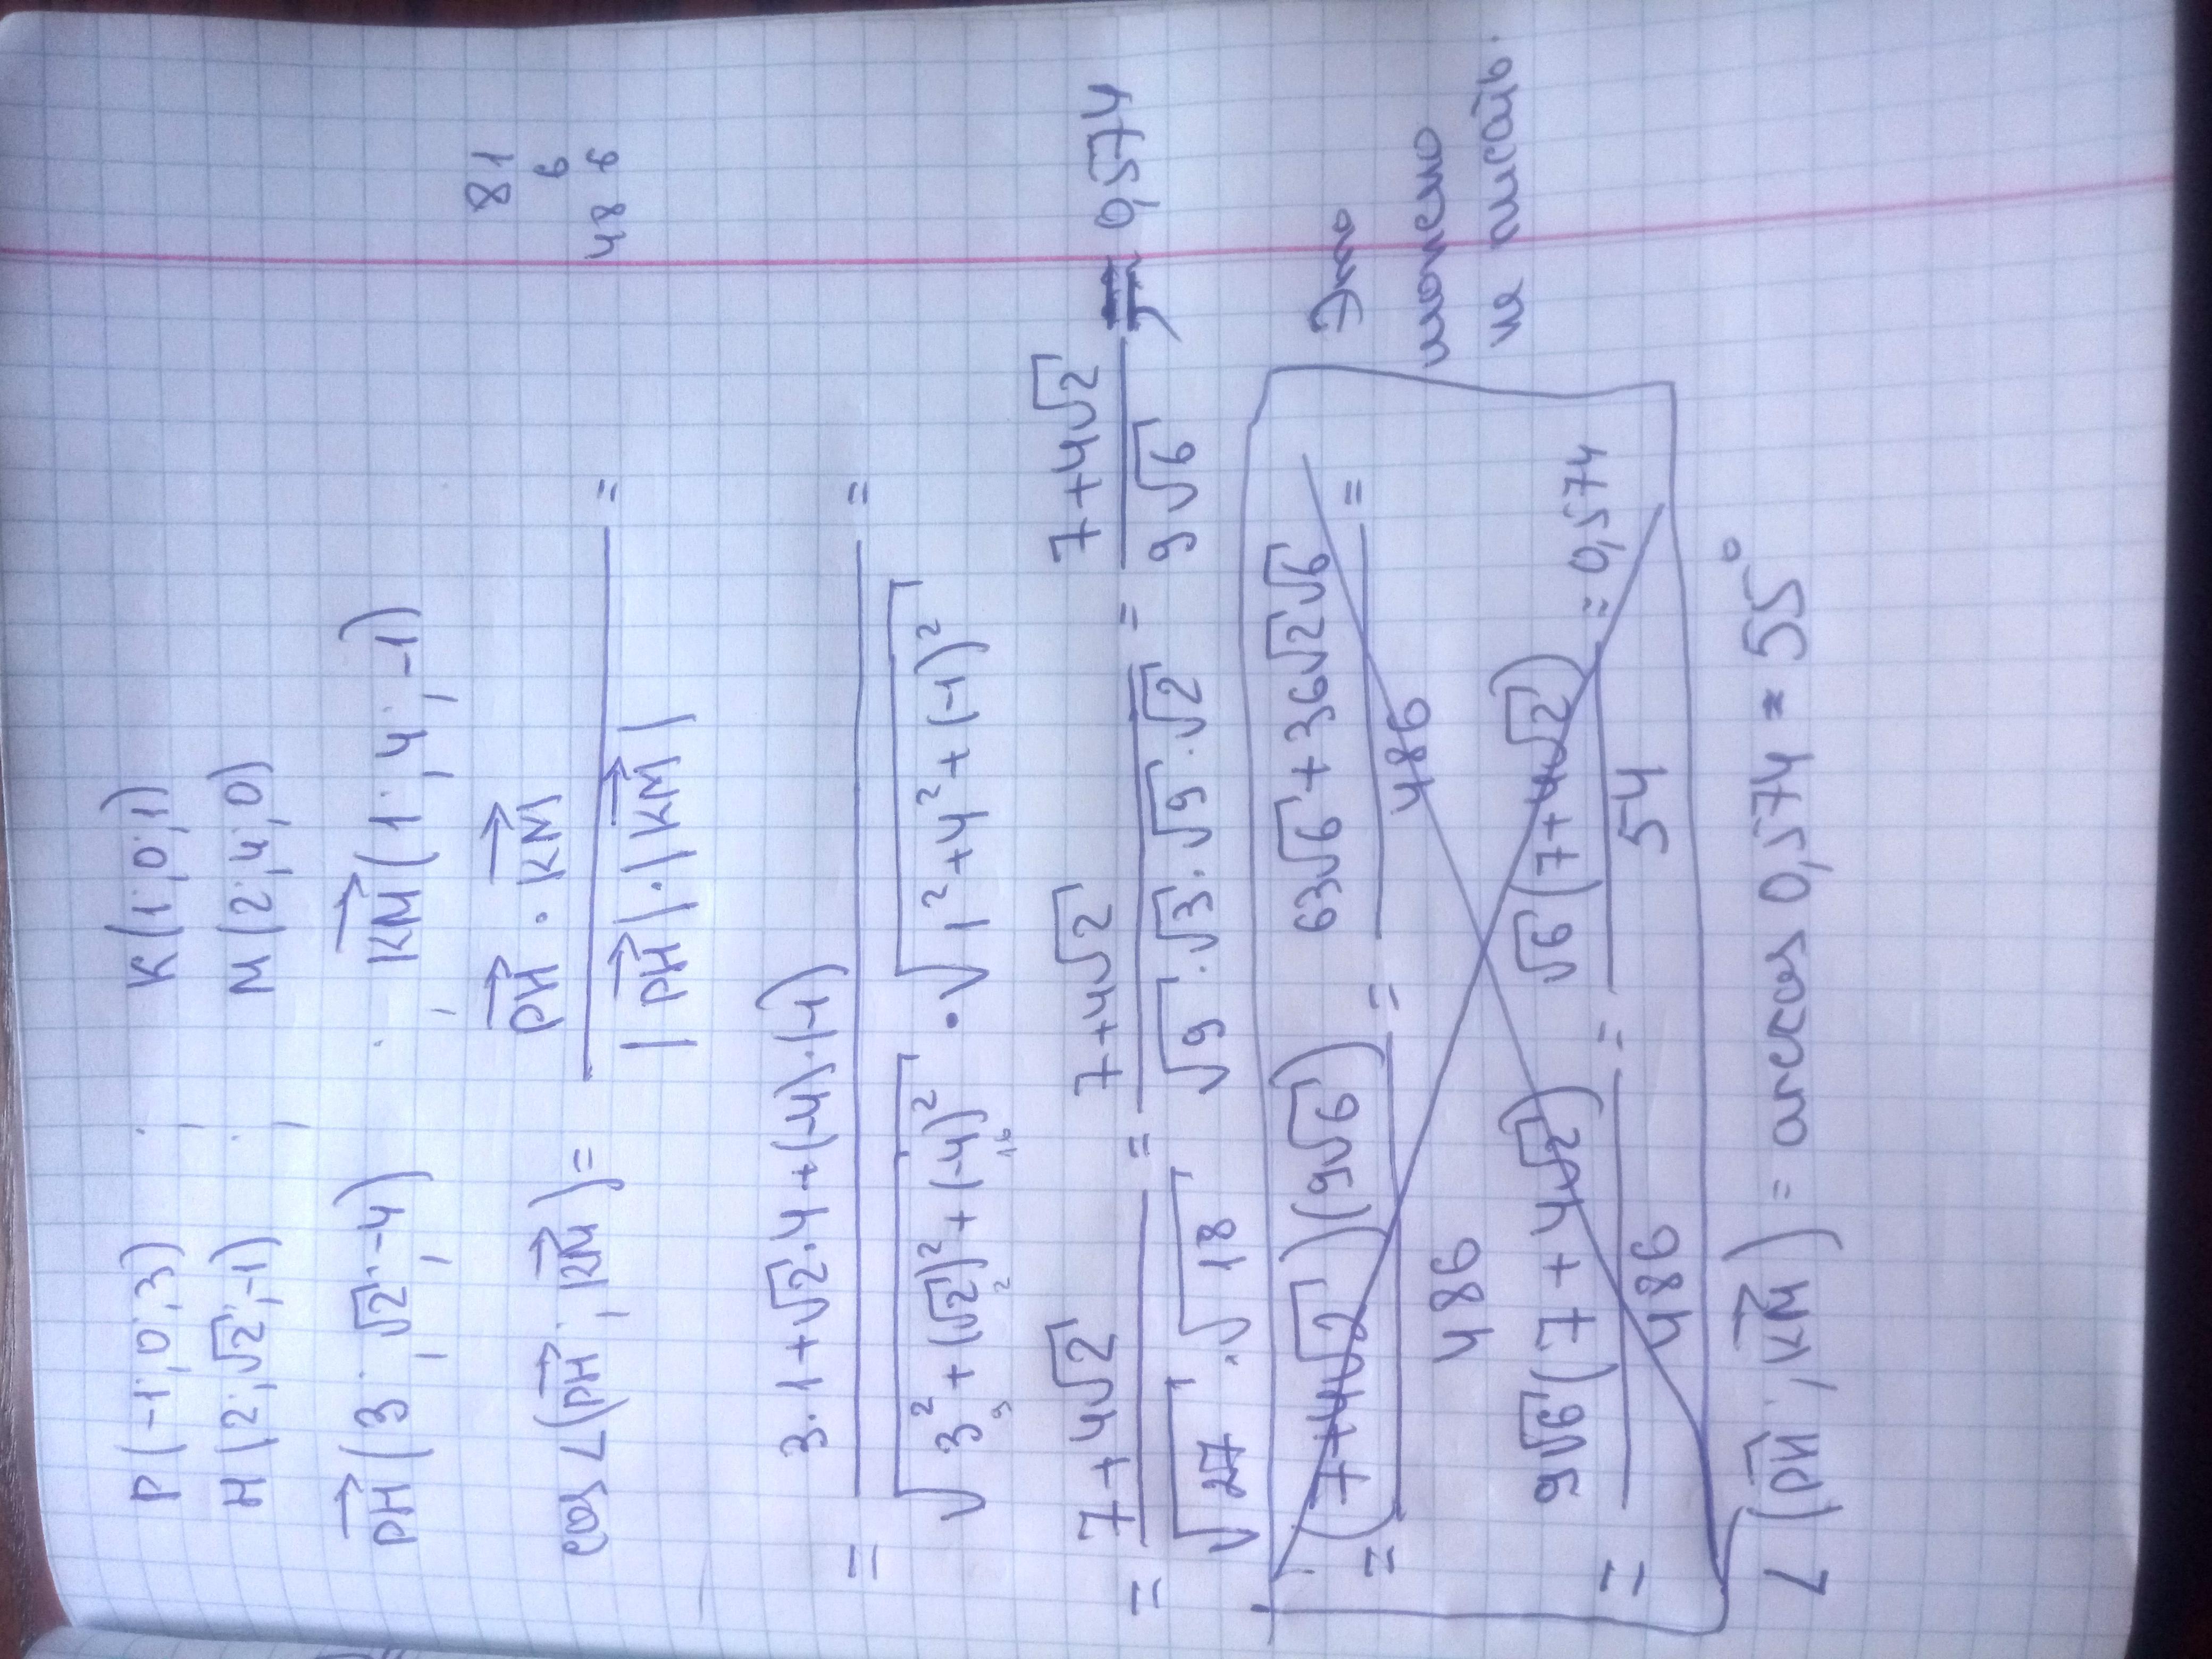 P(-1; 0; 3) ; K(1; 0; 1)
H(2; √2; -1) ; M(2; 4; 0)
PH(3; √2; -4) ; KM(1; 4; -1)
81
6
486
cos∠(PH; KM) = PH · KM / |PH| · |KM| =
= 3·1+√2·4+(-4)·(-1) / √3²+(√2)²+(-4)² · √1²+4²+(-1)² =
9 2 16
= 7+4√2 / √27 · √18 = 7+4√2 / √9·√3·√9·√2 = 7+4√2 / 9√6 ≈ 0,574
= (7+4√2)(9√6) / 486 = 63√6+36√2√6 / 486 =
= 9√6(7+4√2) / 486 = √6(7+4√2) / 54 = 0,574
Это
можемо
не писать.
∠(PH; KM) = arccos 0,574 ≈ 55°